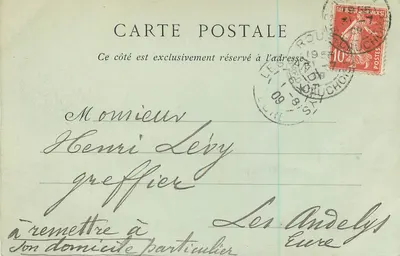 CARTE POSTALE
Ce côté est exclusivement réservé à l'adresse
10
POSTES
Monsieur
Henri Lévy
greffier
à remettre à
son domicile particulier
Les Andelys
Eure
09